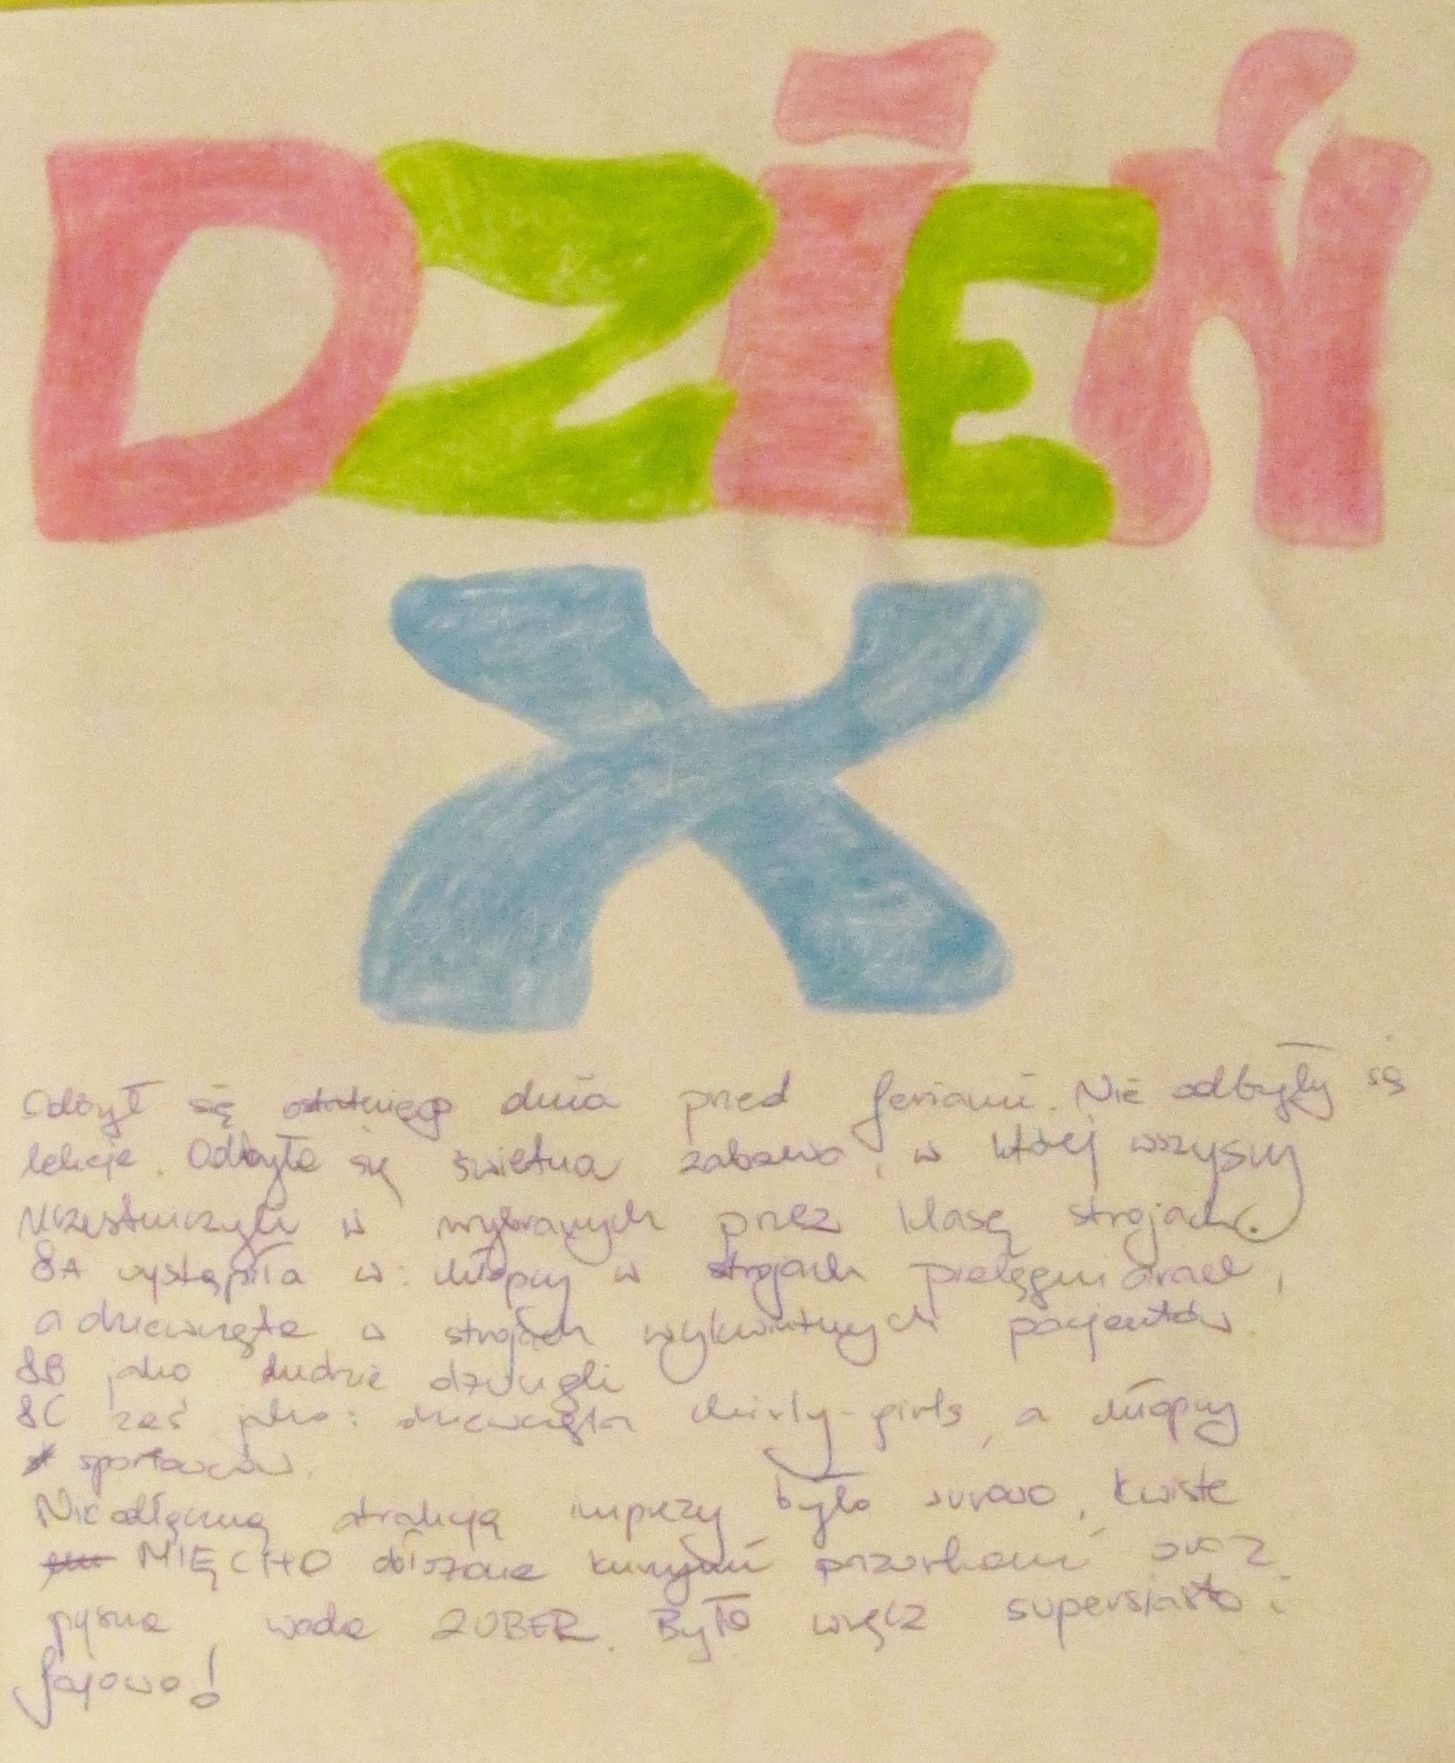 DZIEŃ
X
Odbył się ostatniego dnia przed feriami. Nie odbyły są
lekcje. Odbyła się świetna zabawa, w której wszyscy
uczestniczyli w wybranych przez klasę strojach.
8A wystąpiła w: chłopcy w strojach pielęgniarek,
a dziewczęta w strojach wykwintnych pacjentów.
8B jako ludzie dżungli
8C zaś jako: dziewczęta chirly-girls, a chłopcy
sportowców.
Nieodłączną atrakcją imprezy było surowo, kwiste
MIĘCHO obłożone kurzymi pazurkami oraz
pyszna woda ZUBER. Było wręcz supersiasto i
fajowo!